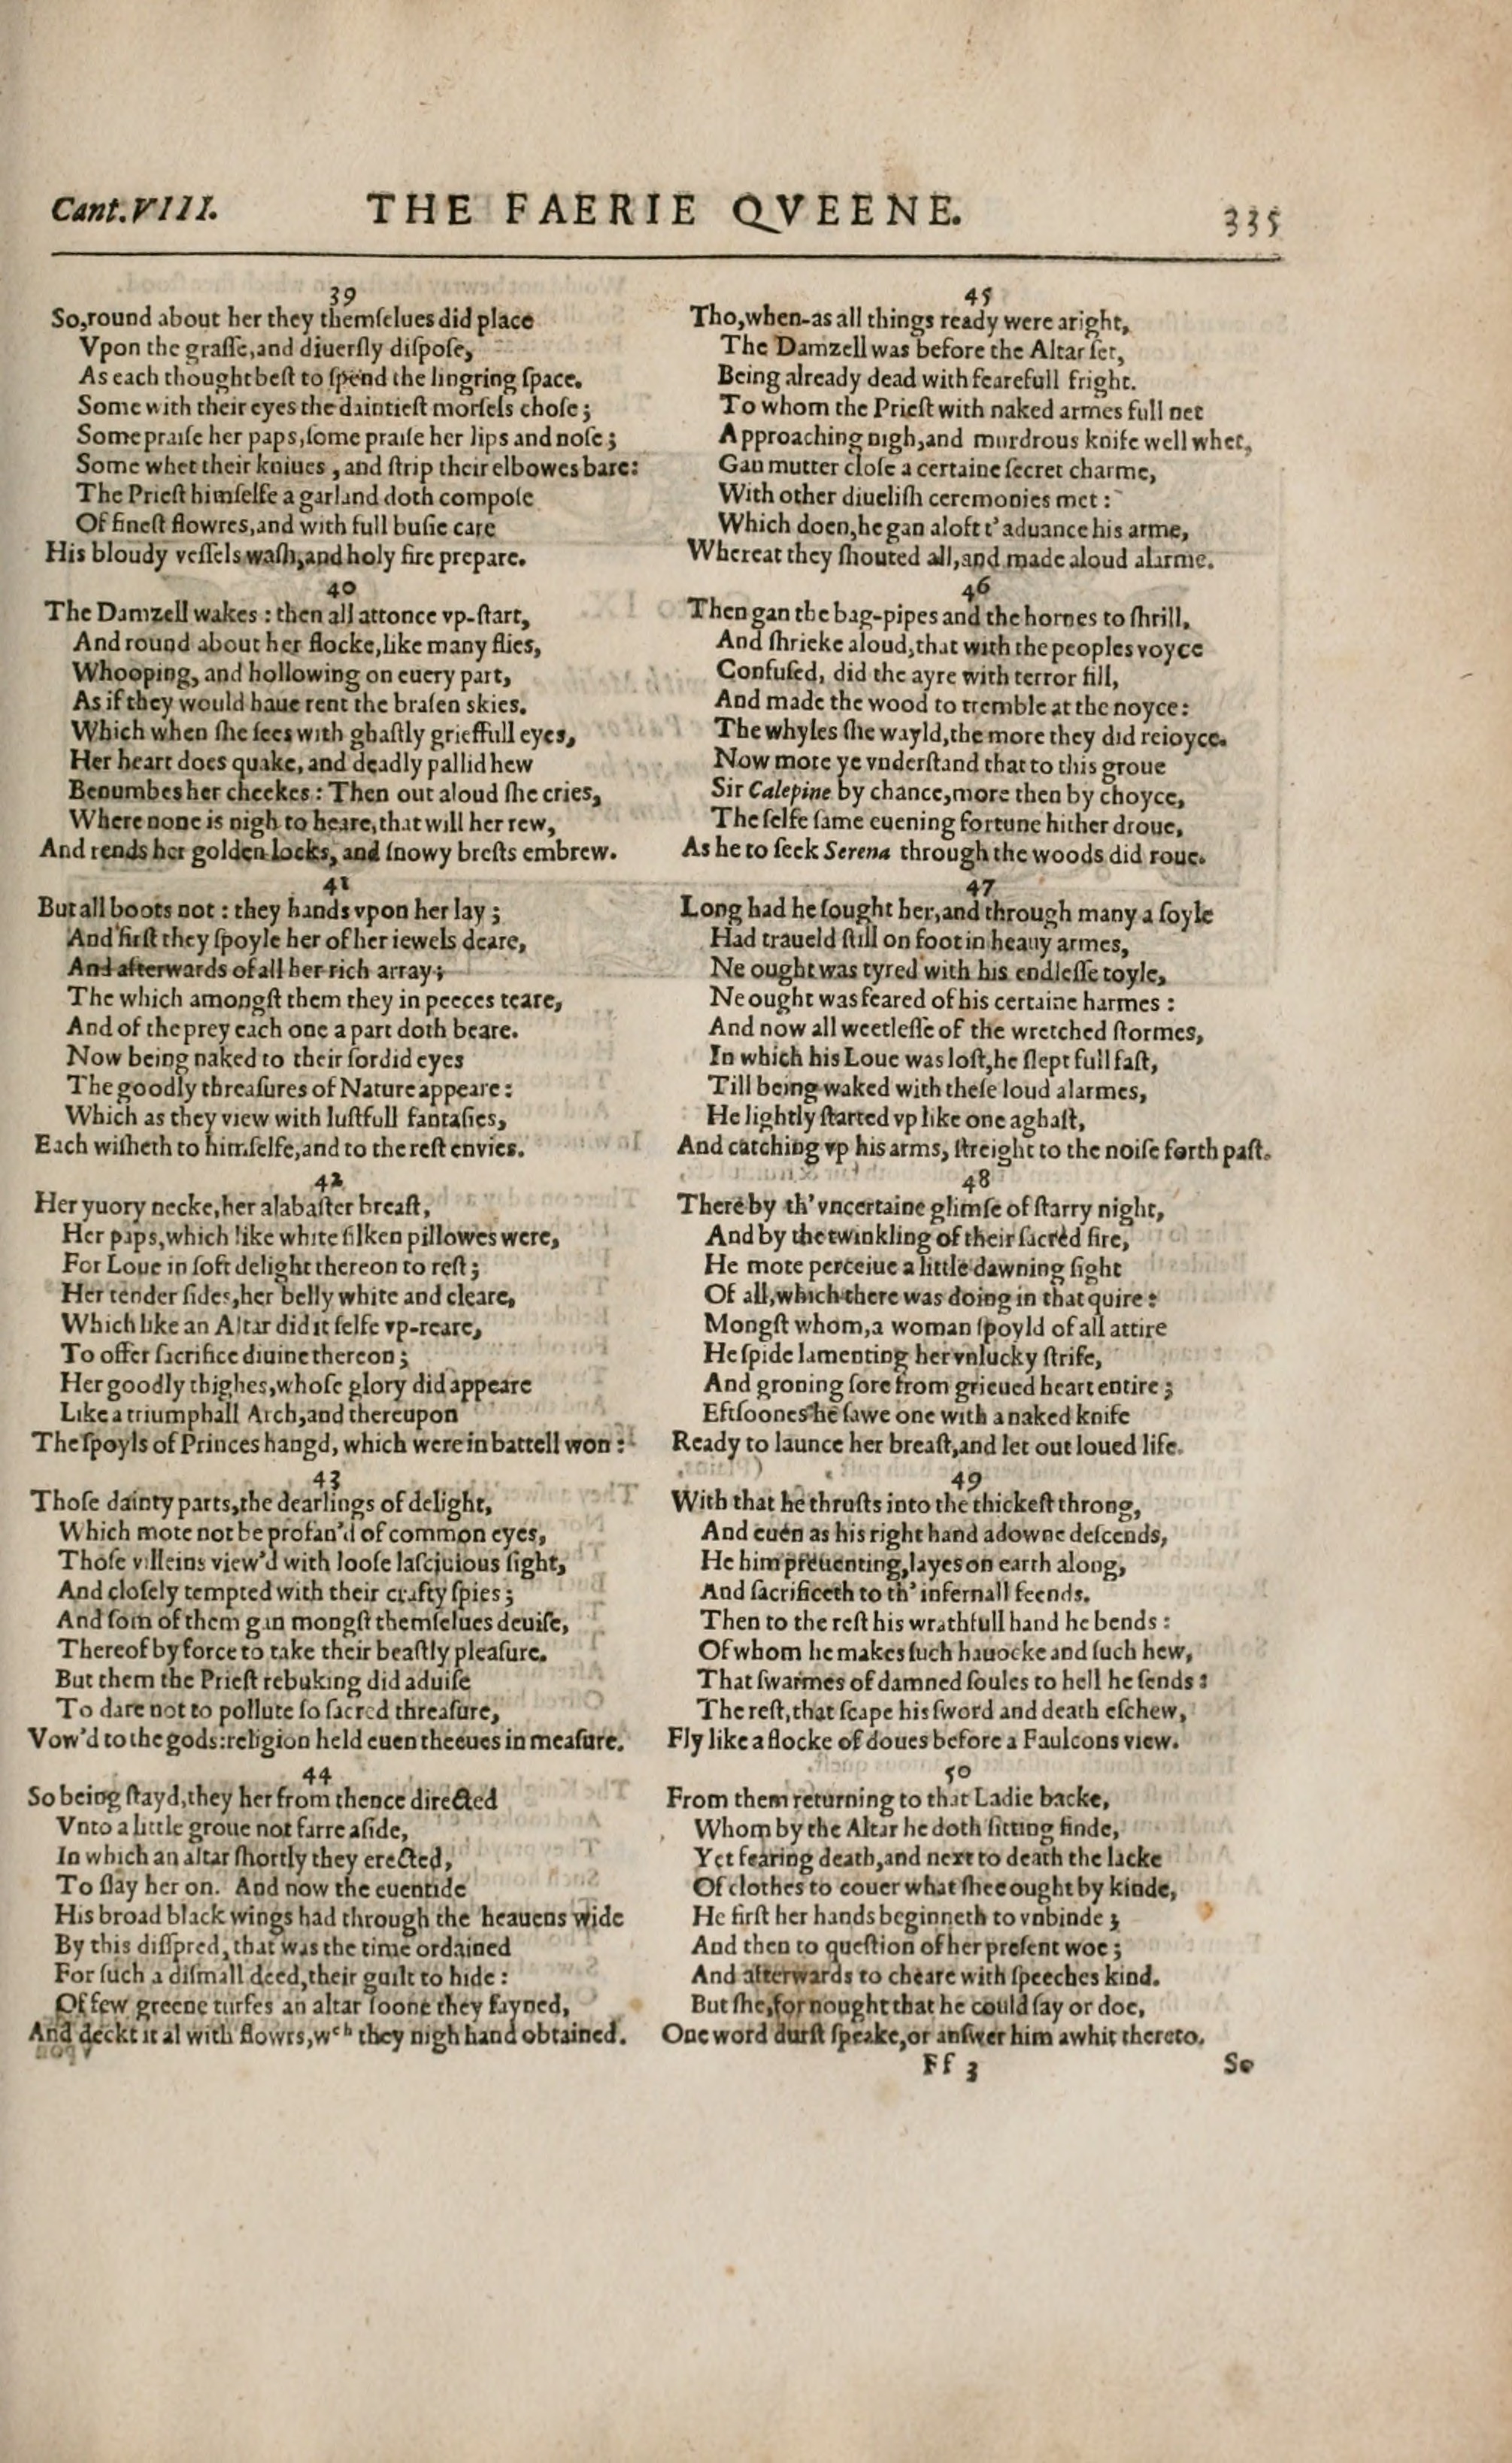 Cant.VIII. THE FAERIE QVEENE. 335
39
So,round about her they themſelues did place
Vpon the graſſe,and diuerſly diſpoſe,
As each thought beſt to ſpend the lingring ſpace.
Some with their eyes the daintieſt morſels choſe;
Some praiſe her paps,ſome praiſe her lips and noſe;
Some whet their kniues , and ſtrip their elbowes bare:
The Prieſt himſelfe a garland doth compoſe
Of fineſt flowres,and with full buſie care
His bloudy veſſels waſh,and holy fire prepare.
40
The Damzell wakes : then all attonce vp-ſtart,
And round about her flocke,like many flies,
Whooping, and hollowing on euery part,
As if they would haue rent the braſen skies.
Which when ſhe ſees with ghaſtly grieffull eyes,
Her heart does quake, and deadly pallid hew
Benumbes her cheekes : Then out aloud ſhe cries,
Where none is nigh to heare,that will her rew,
And rends her golden locks, and ſnowy breſts embrew.
41
But all boots not : they hands vpon her lay ;
And firſt they ſpoyle her of her iewels deare,
And afterwards of all her rich array;
The which amongſt them they in peeces teare,
And of the prey each one a part doth beare.
Now being naked to their ſordid eyes
The goodly threaſures of Nature appeare:
Which as they view with luſtfull fantaſies,
Each wiſheth to himſelfe,and to the reſt envies.
42
Her yuory necke,her alabaſter breaſt,
Her paps,which like white ſilken pillowes were,
For Loue in ſoft delight thereon to reſt;
Her tender ſides,her belly white and cleare,
Which like an Altar did it ſelfe vp-reare,
To offer ſacrifice diuine thereon;
Her goodly thighes,whoſe glory did appeare
Like a triumphall Arch,and thereupon
The ſpoyls of Princes hangd, which were in battell won :
43
Thoſe dainty parts,the dearlings of delight,
Which mote not be profan'd of common eyes,
Thoſe villeins view'd with looſe laſciuious ſight,
And cloſely tempted with their crafty ſpies;
And ſom of them gan mongſt themſelues deuiſe,
Thereof by force to take their beaſtly pleaſure.
But them the Prieſt rebuking did aduiſe
To dare not to pollute ſo ſacred threaſure,
Vow'd to the gods:religion held euen theeues in meaſure.
44
So being ſtayd,they her from thence directed
Vnto a little groue not farre aſide,
In which an altar ſhortly they erected,
To ſlay her on. And now the euentide
His broad black wings had through the heauens wide
By this diſpred, that was the time ordained
For ſuch a diſmall deed,their guilt to hide :
Of few greene turfes an altar ſoone they fayned,
And deckt it al with flowrs,wch they nigh hand obtained.
45
Tho,when-as all things ready were aright,
The Damzell was before the Altar ſet,
Being already dead with fearefull fright.
To whom the Prieſt with naked armes full net
Approaching nigh,and murdrous knife well whet,
Gan mutter cloſe a certaine ſecret charme,
With other diueliſh ceremonies met :
Which doen,he gan aloft t'aduance his arme,
Whereat they ſhouted all,and made aloud alarme.
46
Then gan the bag-pipes and the hornes to ſhrill,
And ſhrieke aloud,that with the peoples voyce
Confuſed, did the ayre with terror fill,
And made the wood to tremble at the noyce:
The whyles ſhe wayld,the more they did reioyce.
Now mote ye vnderſtand that to this groue
Sir Calepine by chance,more then by choyce,
The ſelfe ſame euening fortune hither droue,
As he to ſeek Serena through the woods did roue.
47
Long had he ſought her,and through many a ſoyle
Had traueld ſtill on foot in heauy armes,
Ne ought was tyred with his endleſſe toyle,
Ne ought was feared of his certaine harmes :
And now all weetleſſe of the wretched ſtormes,
In which his Loue was loſt,he ſlept full faſt,
Till being waked with theſe loud alarmes,
He lightly ſtarted vp like one aghaſt,
And catching vp his arms, ſtreight to the noiſe forth paſt.
48
There by th'vncertaine glimſe of ſtarry night,
And by the twinkling of their ſacred fire,
He mote perceiue a little dawning ſight
Of all,which there was doing in that quire :
Mongſt whom,a woman ſpoyld of all attire
He ſpide lamenting her vnlucky ſtrife,
And groning ſore from grieued heart entire ;
Eftſoones he ſawe one with a naked knife
Ready to launce her breaſt,and let out loued life.
49
With that he thruſts into the thickeſt throng,
And euen as his right hand adowne deſcends,
He him preuenting,layes on earth along,
And ſacrificeth to th'infernall feends.
Then to the reſt his wrathfull hand he bends :
Of whom he makes ſuch hauocke and ſuch hew,
That ſwarmes of damned ſoules to hell he ſends :
The reſt,that ſcape his ſword and death eſchew,
Fly like a flocke of doues before a Faulcons view.
50
From them returning to that Ladie backe,
Whom by the Altar he doth ſitting finde,
Yet fearing death,and next to death the lacke
Of clothes to couer what ſhee ought by kinde,
He firſt her hands beginneth to vnbinde ;
And then to queſtion of her preſent woe ;
And afterwards to cheare with ſpeeches kind.
But ſhe,for nought that he could ſay or doe,
One word durſt ſpeake,or anſwer him awhit thereto.
Ff 3 So